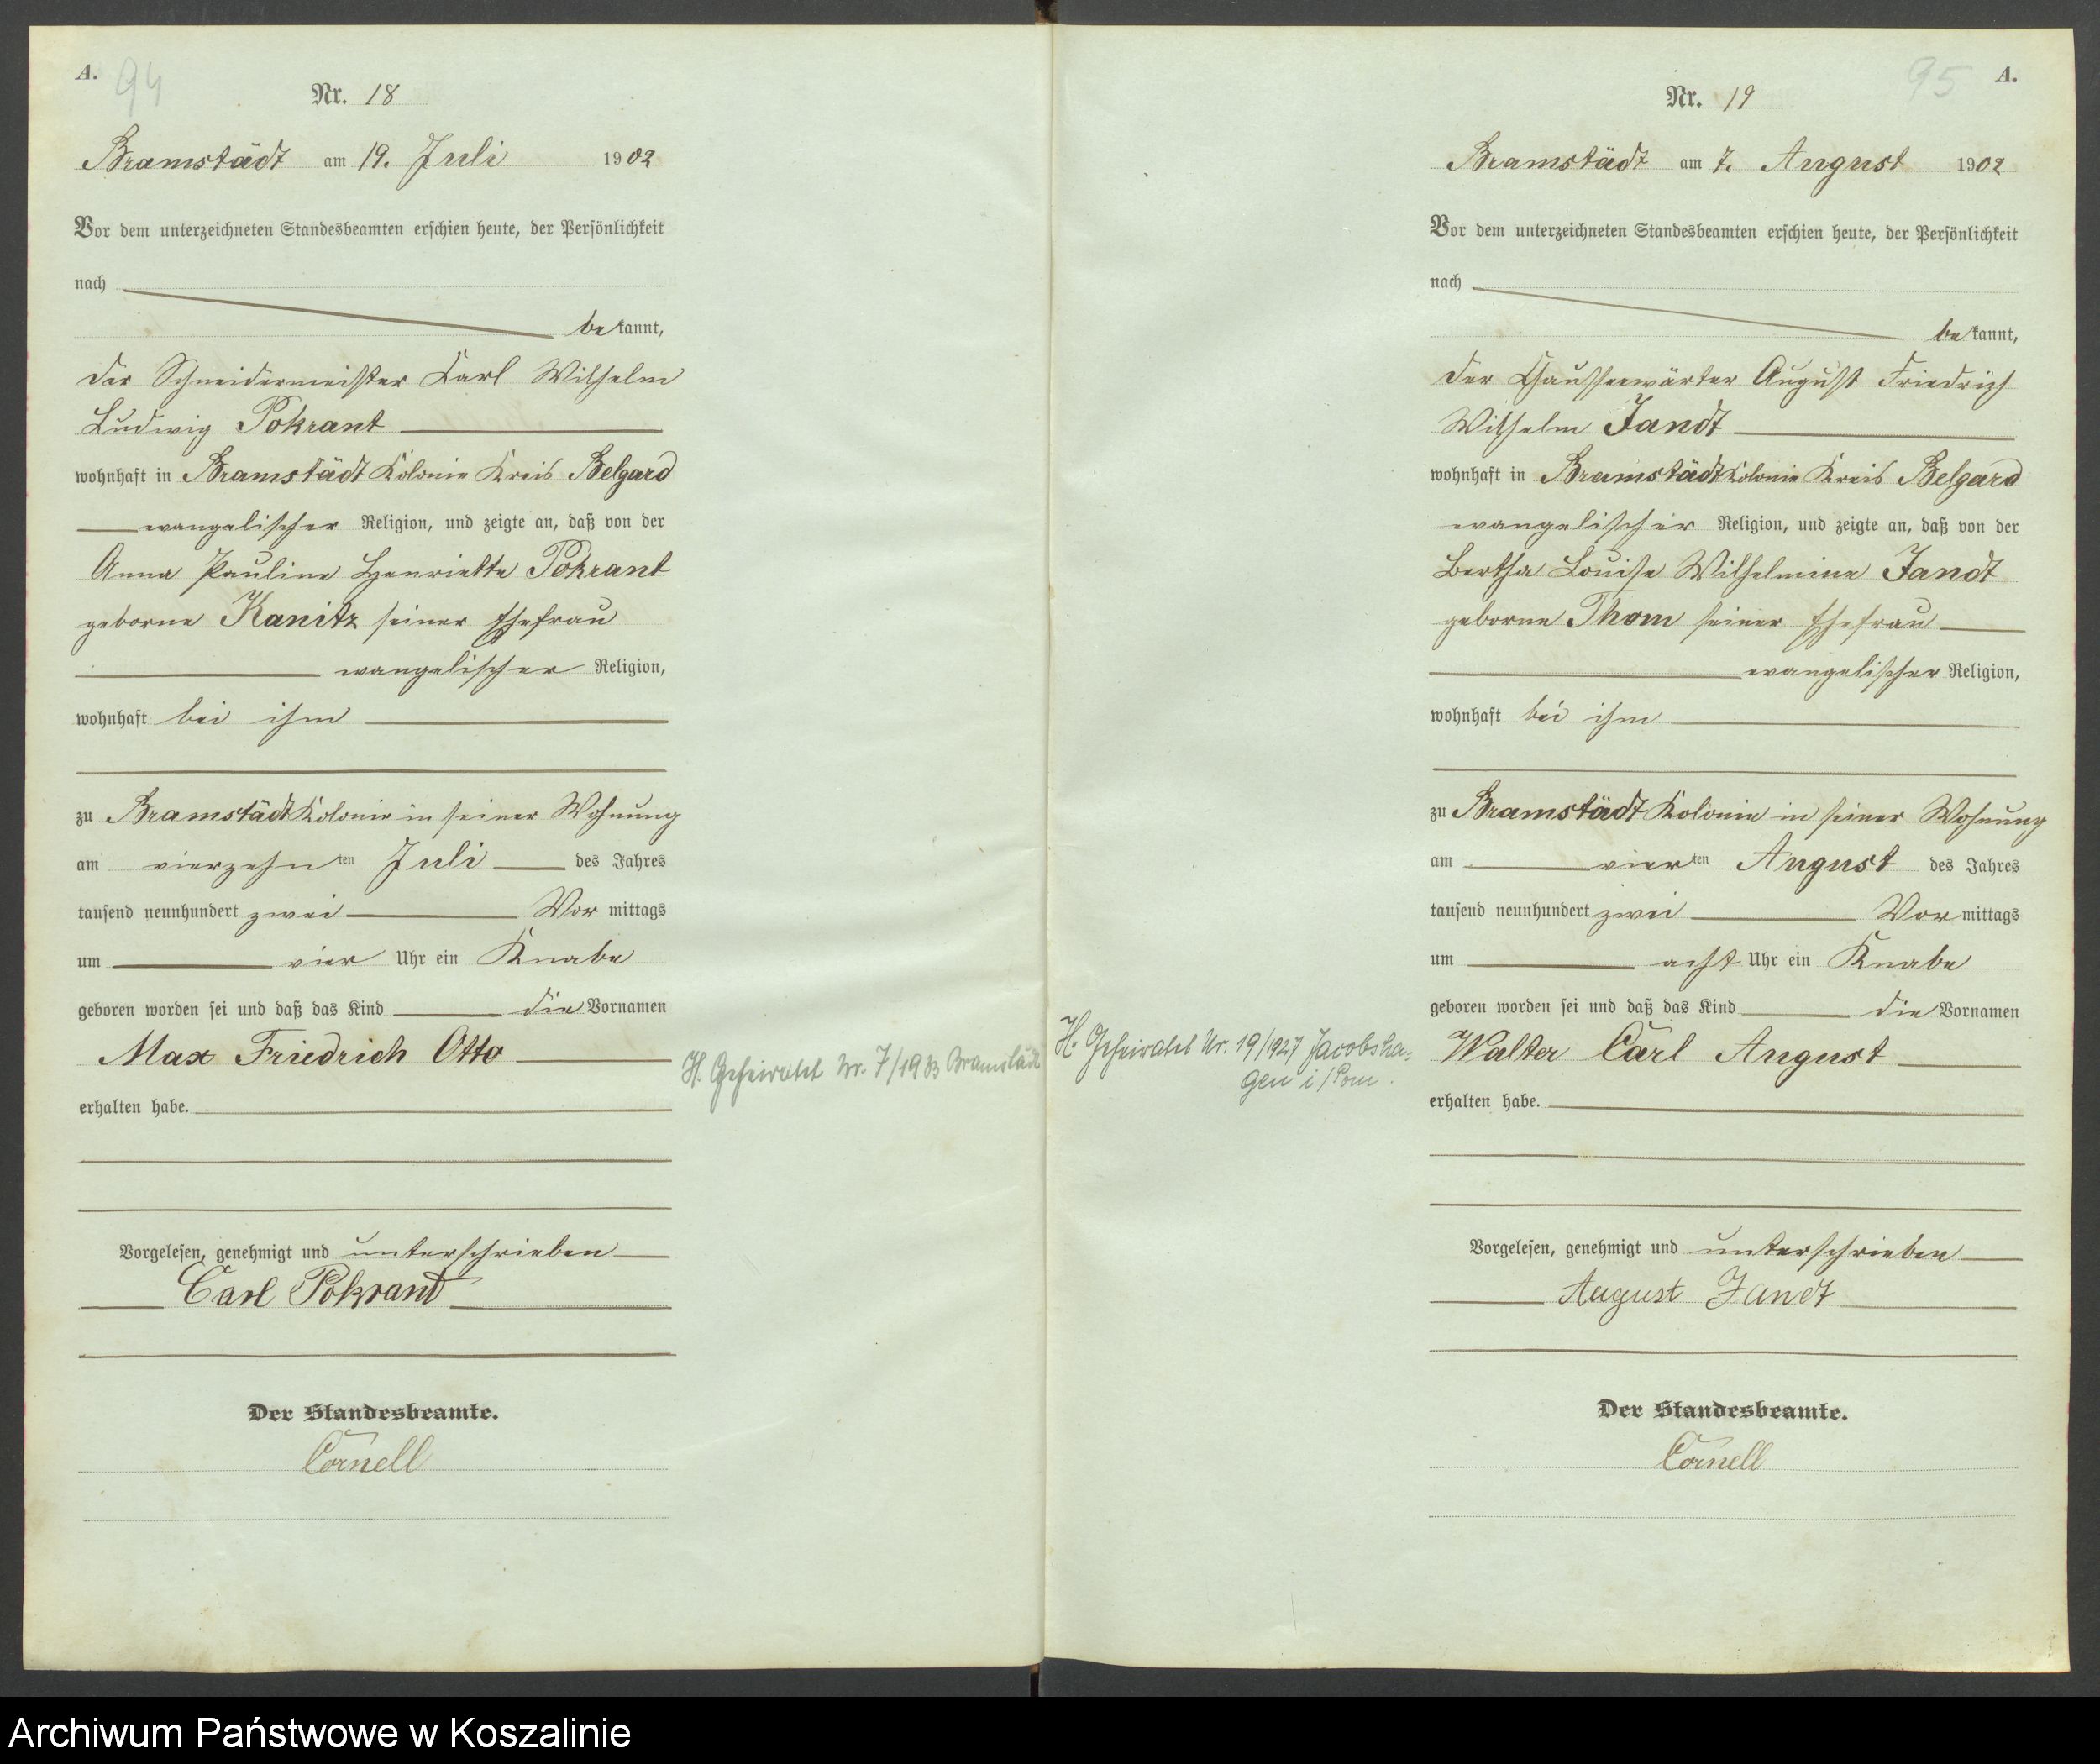 A.
94
Nr. 18
Bramstädt am 19. Juli 1902
Vor dem unterzeichneten Standesbeamten erschien heute, der Persönlichkeit
nach
bekannt,
der Schneidermeister Karl Wilhelm
Ludwig Pokrant
wohnhaft in Bramstädt Kolonie Kreis Belgard
evangelischer Religion, und zeigte an, daß von der
Anna Pauline Henriette Pokrant
geborne Kanitz seiner Ehefrau
evangelischer Religion,
wohnhaft bei ihm
zu Bramstädt Kolonie in seiner Wohnung
am vierzehnten Juli des Jahres
tausend neunhundert zwei Vormittags
um vier Uhr ein Knabe
geboren worden sei und daß das Kind die Vornamen
Max Friedrich Otto
H. Geheiratet Nr. 7/1933 Bramstädt
erhalten habe.
Vorgelesen, genehmigt und unterschrieben
Carl Pokrant
Der Standesbeamte.
Cornell
95
A.
Nr. 19
Bramstädt am 7. August 1902
Vor dem unterzeichneten Standesbeamten erschien heute, der Persönlichkeit
nach
bekannt,
der Chausseewärter August Friedrich
Wilhelm Jandt
wohnhaft in Bramstädt Kolonie Kreis Belgard
evangelischer Religion, und zeigte an, daß von der
Bertha Louise Wilhelmine Jandt
geborne Thom seiner Ehefrau
evangelischer Religion,
wohnhaft bei ihm
zu Bramstädt Kolonie in seiner Wohnung
am vierten August des Jahres
tausend neunhundert zwei Vormittags
um acht Uhr ein Knabe
geboren worden sei und daß das Kind die Vornamen
H. Geheiratet Nr. 19/1927 Jacobsha-
gen i/Pom.
Walter Carl August
erhalten habe.
Vorgelesen, genehmigt und unterschrieben
August Jandt
Der Standesbeamte.
Cornell
Archiwum Państwowe w Koszalinie